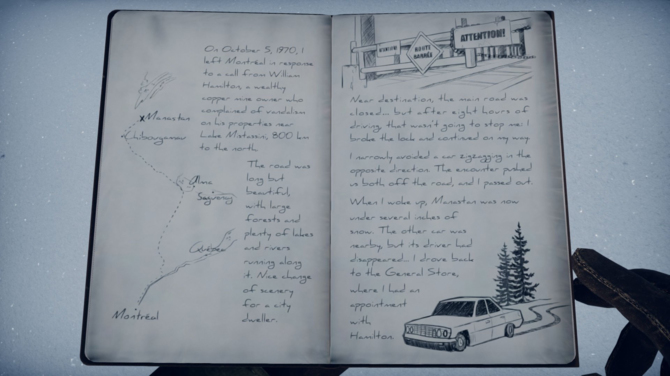 On October 5, 1970, I
left Montréal in response
to a call from William
Hamilton, a wealthy
copper mine owner who
complained of vandalism
on his properties near
Lake Mistassin, 800 km
to the north.
The road was
long but
beautiful,
with large
forests and
plenty of lakes
and rivers
running along
it. Nice change
of scenery
for a city
dweller.
Manastan
Chibougamau
Alma
Saguenay
Québec
Montréal
ROUTE
BARRÉE
ATTENTION!
Near destination, the main road was
closed... but after eight hours of
driving, that wasn't going to stop me. I
broke the lock and continued on my way.
I narrowly avoided a car zigzagging in the
opposite direction. The encounter pushed
us both off the road, and I passed out.
When I woke up, Manastan was now
under several inches of
snow. The other car was
nearby, but its driver had
disappeared... I drove back
to the General Store,
where I had an
appointment
with
Hamilton.